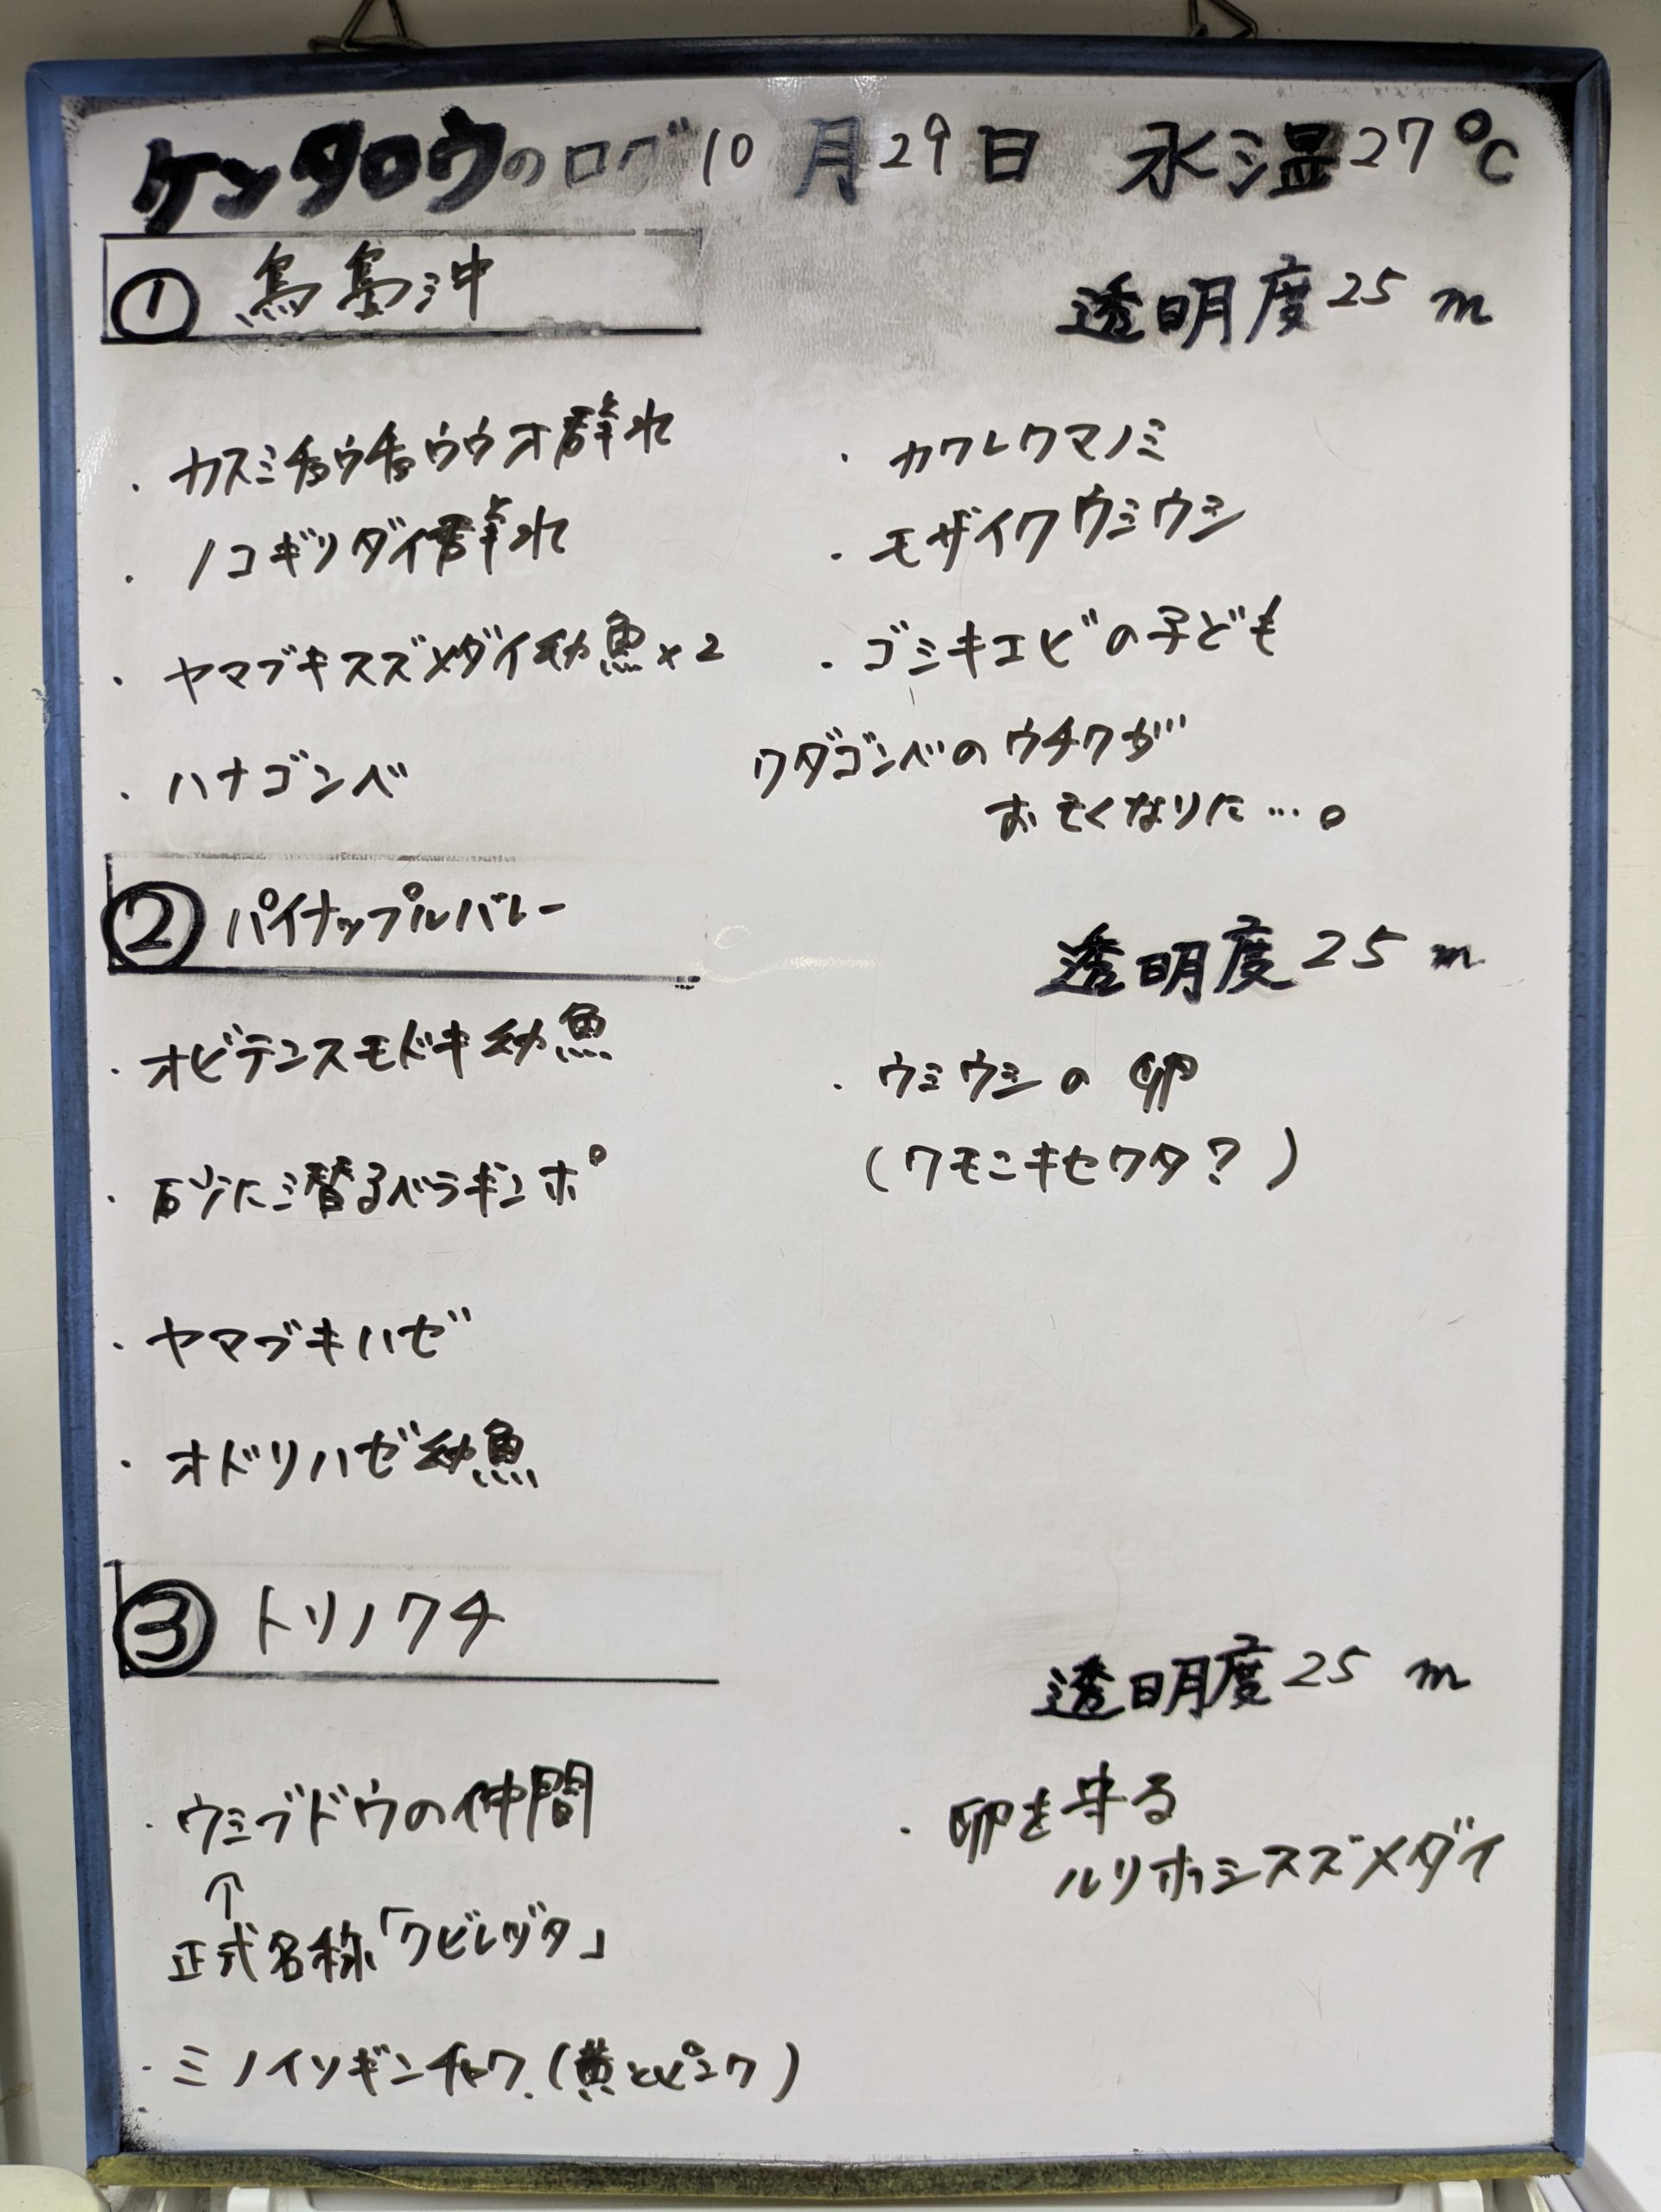 ケンタロウのログ 10月29日 水温27℃
① 鳥島沖
透明度25m
・カスミチョウチョウウオ群れ
・ノコギリダイ群れ
・ヤマブキスズメダイ幼魚×2
・ハナゴンベ
・カクレクマノミ
・モザイクウミウシ
・ゴシキエビの子ども
クダゴンベのウチワが
おそくなりに…。
② パイナップルバレー
透明度25m
・オビテンスモドキ幼魚
・砂に潜るベラギンポ
・ヤマブキハゼ
・オドリハゼ幼魚
・ウミウシの卵
(クモニキセワタ?)
③ トリノクチ
透明度25m
・ウミブドウの仲間
↑
正式名称「クビレヅタ」
・ミノイソギンチャク(黄とピンク)
・卵を守る
ルリホシスズメダイ